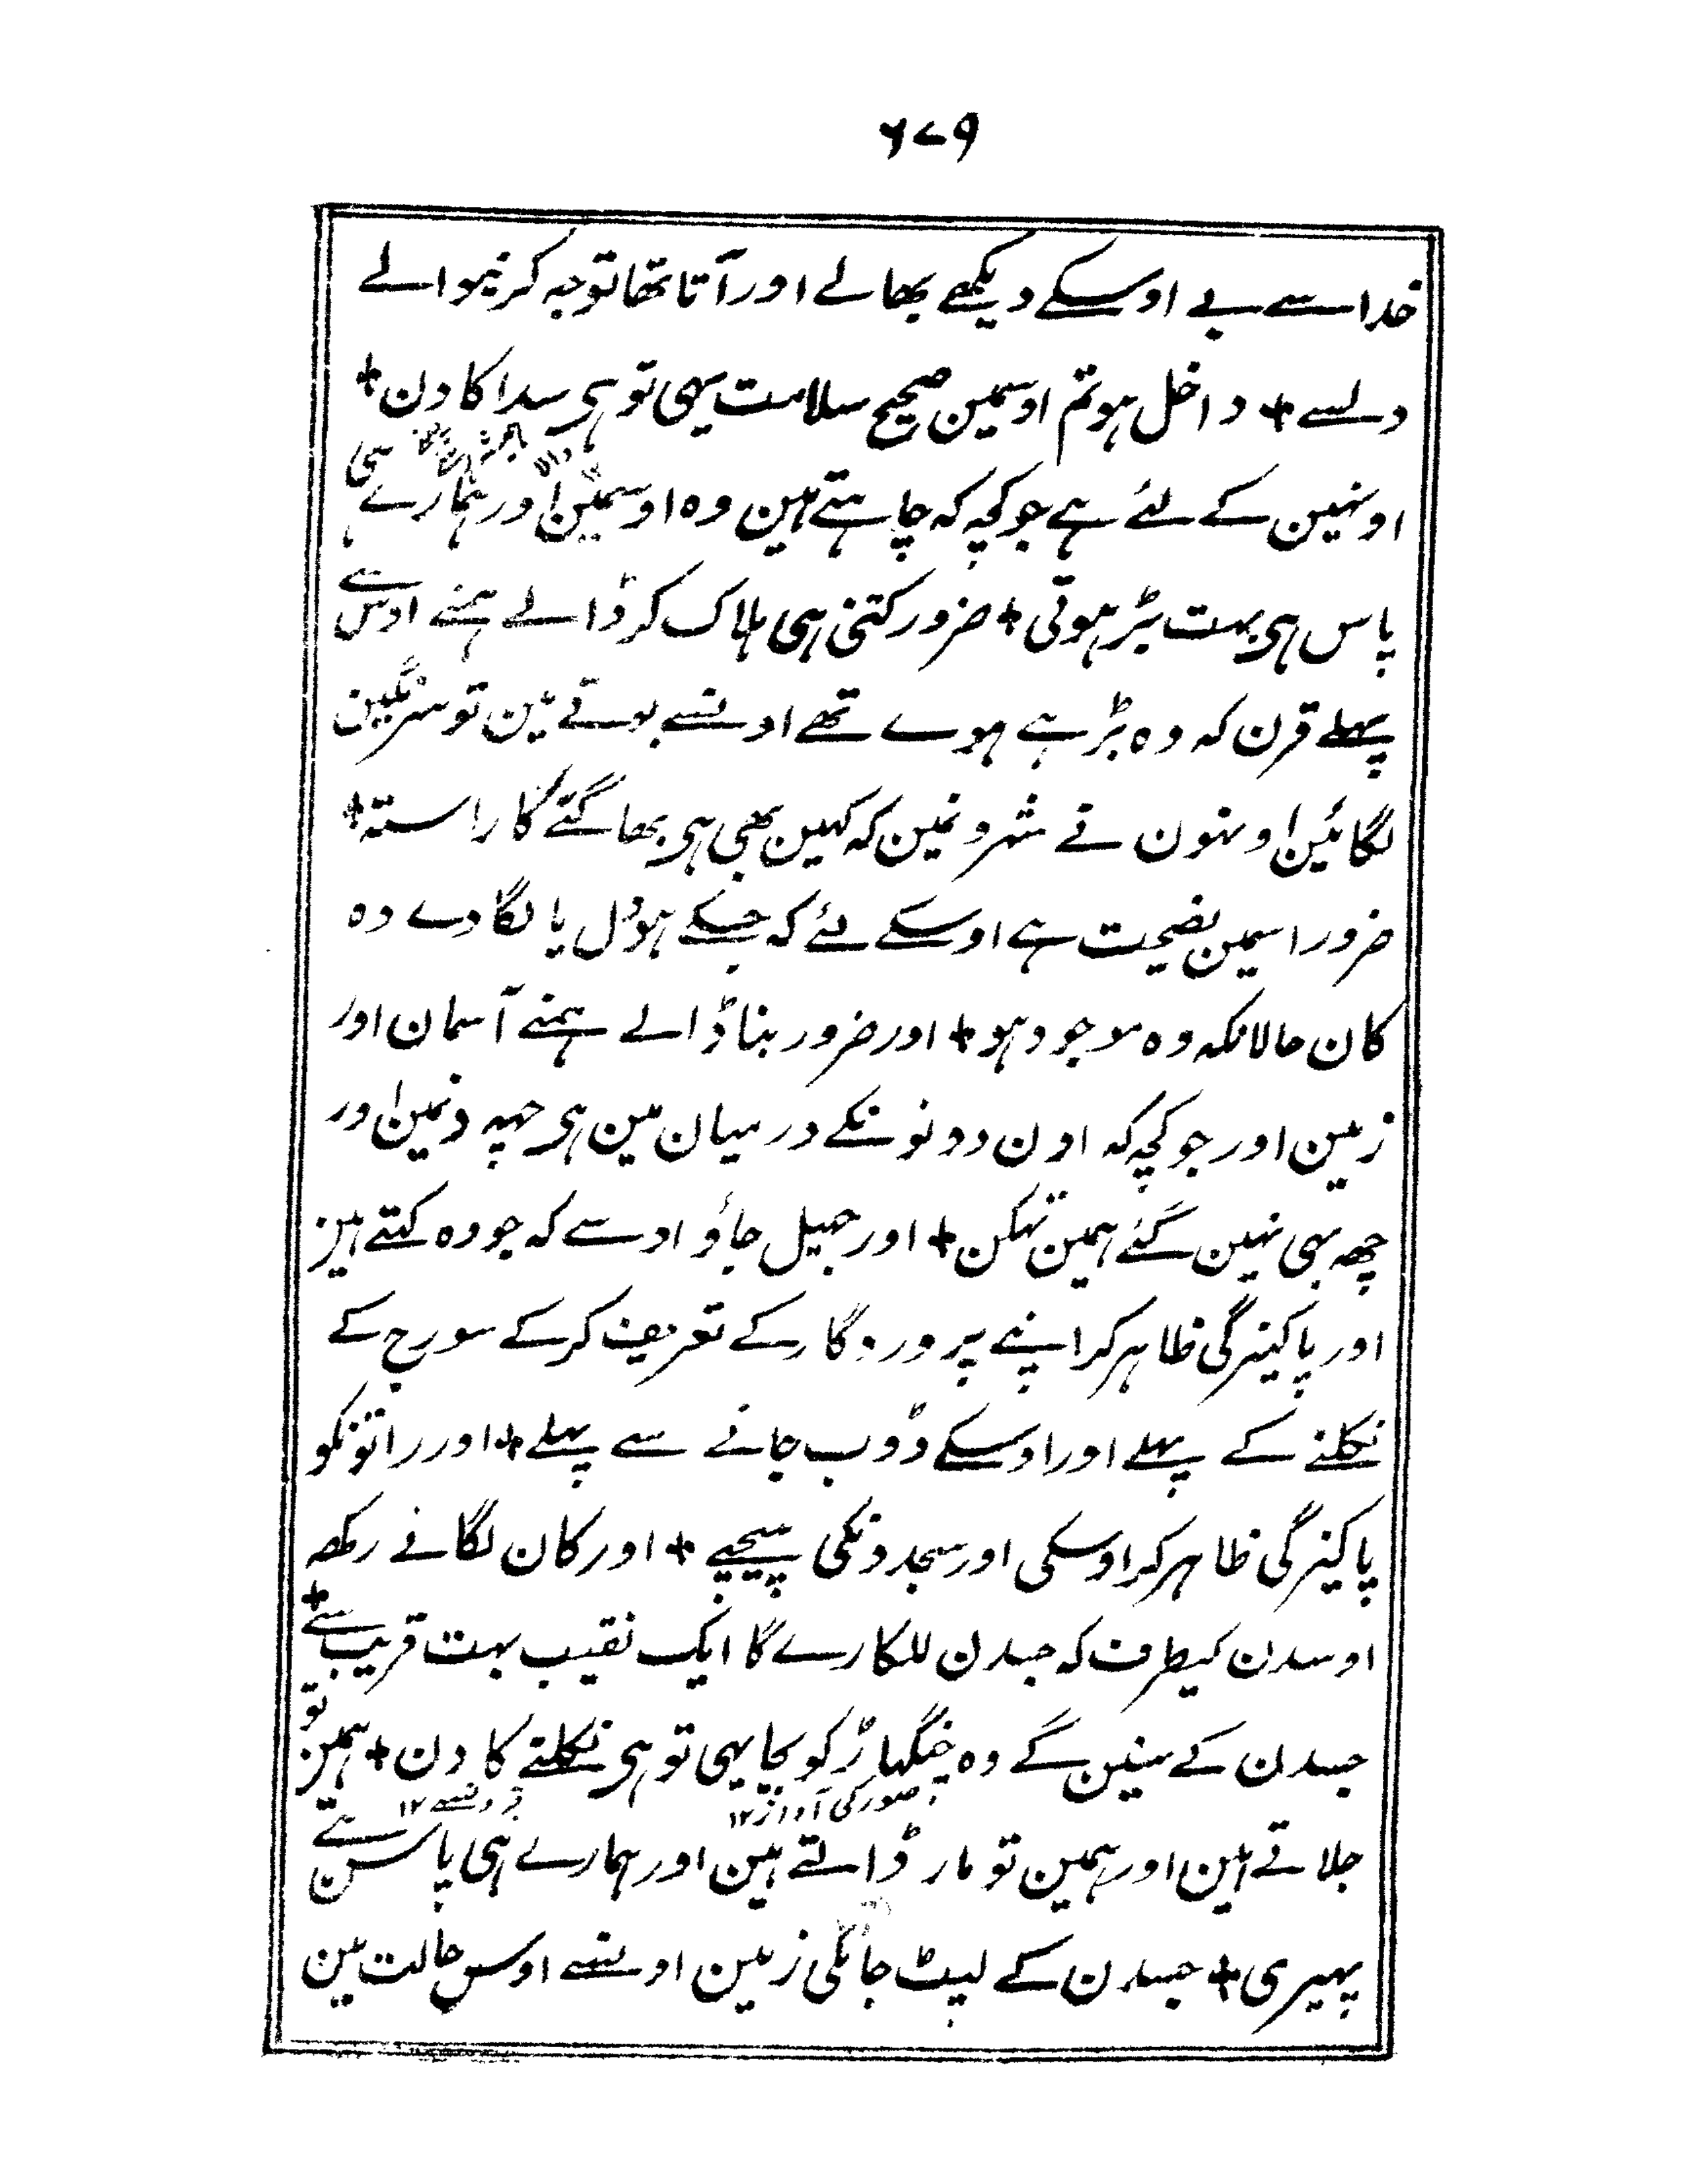 ۶۷۹
خدا سے بے اوسکے دیکھے بھالے اور آتا تھا توجہ کرنیوالے
دلسے + داخل ہو تم اوسمین صحیح سلامت یہی تو ہی سدا کا دن +
اونہین کے لئے ہے جو کچہ کہ چاہتے ہین وہ اوسمین اور ہمارے ہی
پاس ہی بہت بڑہوتی + ضرور کتنی ہی ہلاک کر ڈالے ہمنے اونسے
پہلے قرن کہ وہ بڑہے ہوے تھے اونسے بوتے مین تو سرنگین
لگائین اونہون نے شہرونمین کہ کہین بھی ہی بھاگنے کا راستہ +
ضرور اسمین نصیحت ہے اوسکے لئے کہ جسکے ہو دل یا لگا دے وہ
کان حالانکہ وہ موجود ہو + اور ضرور بنا ڈالے ہمنے آسمان اور
زمین اور جو کچہ کہ اون دونونکے درمیان مین ہی چہہ دنمین اور
چھو بھی نہین گئے ہمین تہکن + اور جھیل جاؤ اوسے کہ جو وہ کہتے ہین
اور پاکیزگی ظاہر کر اپنے پروردگار کے تعریف کر کے سورج کے
نکلنے کے پہلے اور اوسکے ڈوب جانے سے پہلے + اور راتونکو
پاکیزگی ظاہر کر اوسکی اور سجدونکی پیچھے + اور کان لگائے رکھ
اوسدن کیطرف کہ جسدن للکارے گا ایک نقیب بہت قریب سے +
جسدن کے سنین گے وہ چنگہاڑ کو بجا یہی تو ہی نکلنے کا دن + ہمین تو
صور کی آواز ۱۲
جلاتے ہین اور ہمین تو مار ڈالتے ہین اور ہمارے ہی پاس ہے
پہیری + جسدن کے لپٹ جائگی زمین اونسے اوس حالت مین